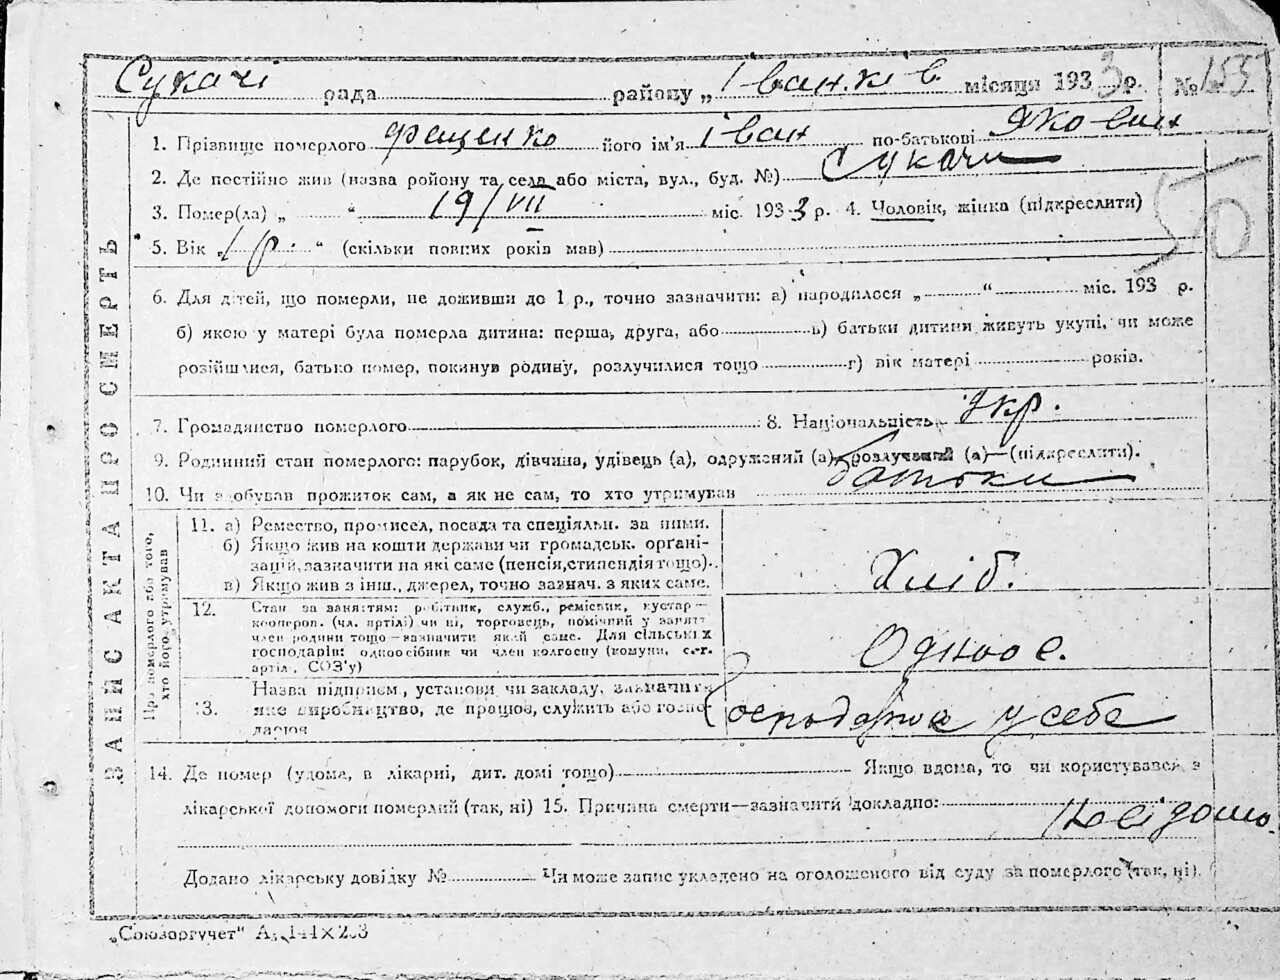 Сукачі рада району „ Іванків місяця 1933 р. № 155
1. Прізвище померлого Фещенко його ім'я Іван по-батькові Якович
2. Де постійно жив (назва ройону та села або міста, вул., буд. №) Сукачи
3. Помер(ла) „ “ 19/VII міс. 1933 р. 4. Чоловік, жінка (підкреслити)
50
5. Вік „1 р. “ (скільки повних років мав)
6. Для дітей, що померли, не доживши до 1 р., точно зазначити: а) народилося „ “ міс. 193 р.
б) якою у матері була померла дитина: перша, друга, або в) батьки дитини живуть укупі, чи може
розійшлися, батько помер, покинув родину, розлучилися тощо г) вік матері років.
7. Громадянство померлого 8. Національність Укр.
9. Родинний стан померлого: парубок, дівчина, удівець (а), одружений (а), розлучений (а)—(підкреслити).
10. Чи здобував прожиток сам, а як не сам, то хто утримував батьки
ЗАПИС АКТА ПРО СМЕРТЬ
Про померлого або того,
хто його утримував
11. а) Ремество, промисел, посада та спеціяльн. за ними.
б) Якщо жив на кошти держави чи громадськ. орґані-
зацій, зазначити на які саме (пенсія, стипендія тощо).
в) Якщо жив з інш. джерел, точно зазнач. з яких саме.
Хліб.
12. Стан за заняттям: робітник, служб., ремісник, кустар—
кооперов. (чл. артілі) чи ні, торговець, помічний у занятт
член родини тощо—зазначити який саме. Для сільськіх
господарів: одноосібник чи член колгоспу (комуни, с.-г.
артіл., СОЗ'у)
Одноос.
13. Назва підприєм., установи чи закладу, зазначити
яке виробництво, де працює, служить або госпо-
дарює
Господарює у себе
14. Де помер (удома, в лікарні, дит. домі тощо) Якщо вдома, то чи користувався з
лікарської допомоги померлий (так, ні) 15. Причина смерти—зазначити докладно:
Невідомо.
Додано лікарську довідку № Чи може запис укладено на оголошеного від суду за померлого (так, ні).
„Союзоргучет“